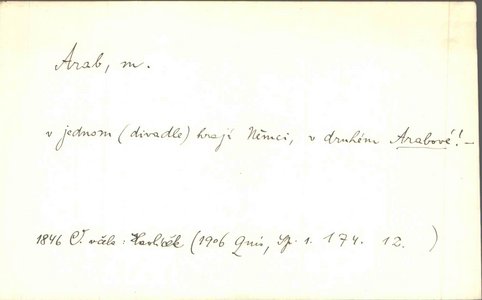 Arab, m.
v jednom (divadle) hrají Němci, v druhém Arabové! –
1846 Č. včela: Havlíček (1906 Quis, Sp. 1. 174. 12. )